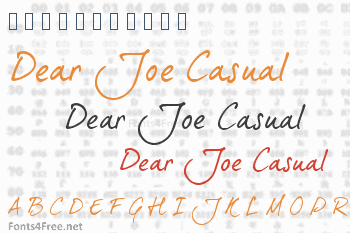 Dear Joe Casual
Dear Joe Casual
Dear Joe Casual
A B C D E F G H I J K L M O P R
Fonts4Free.net